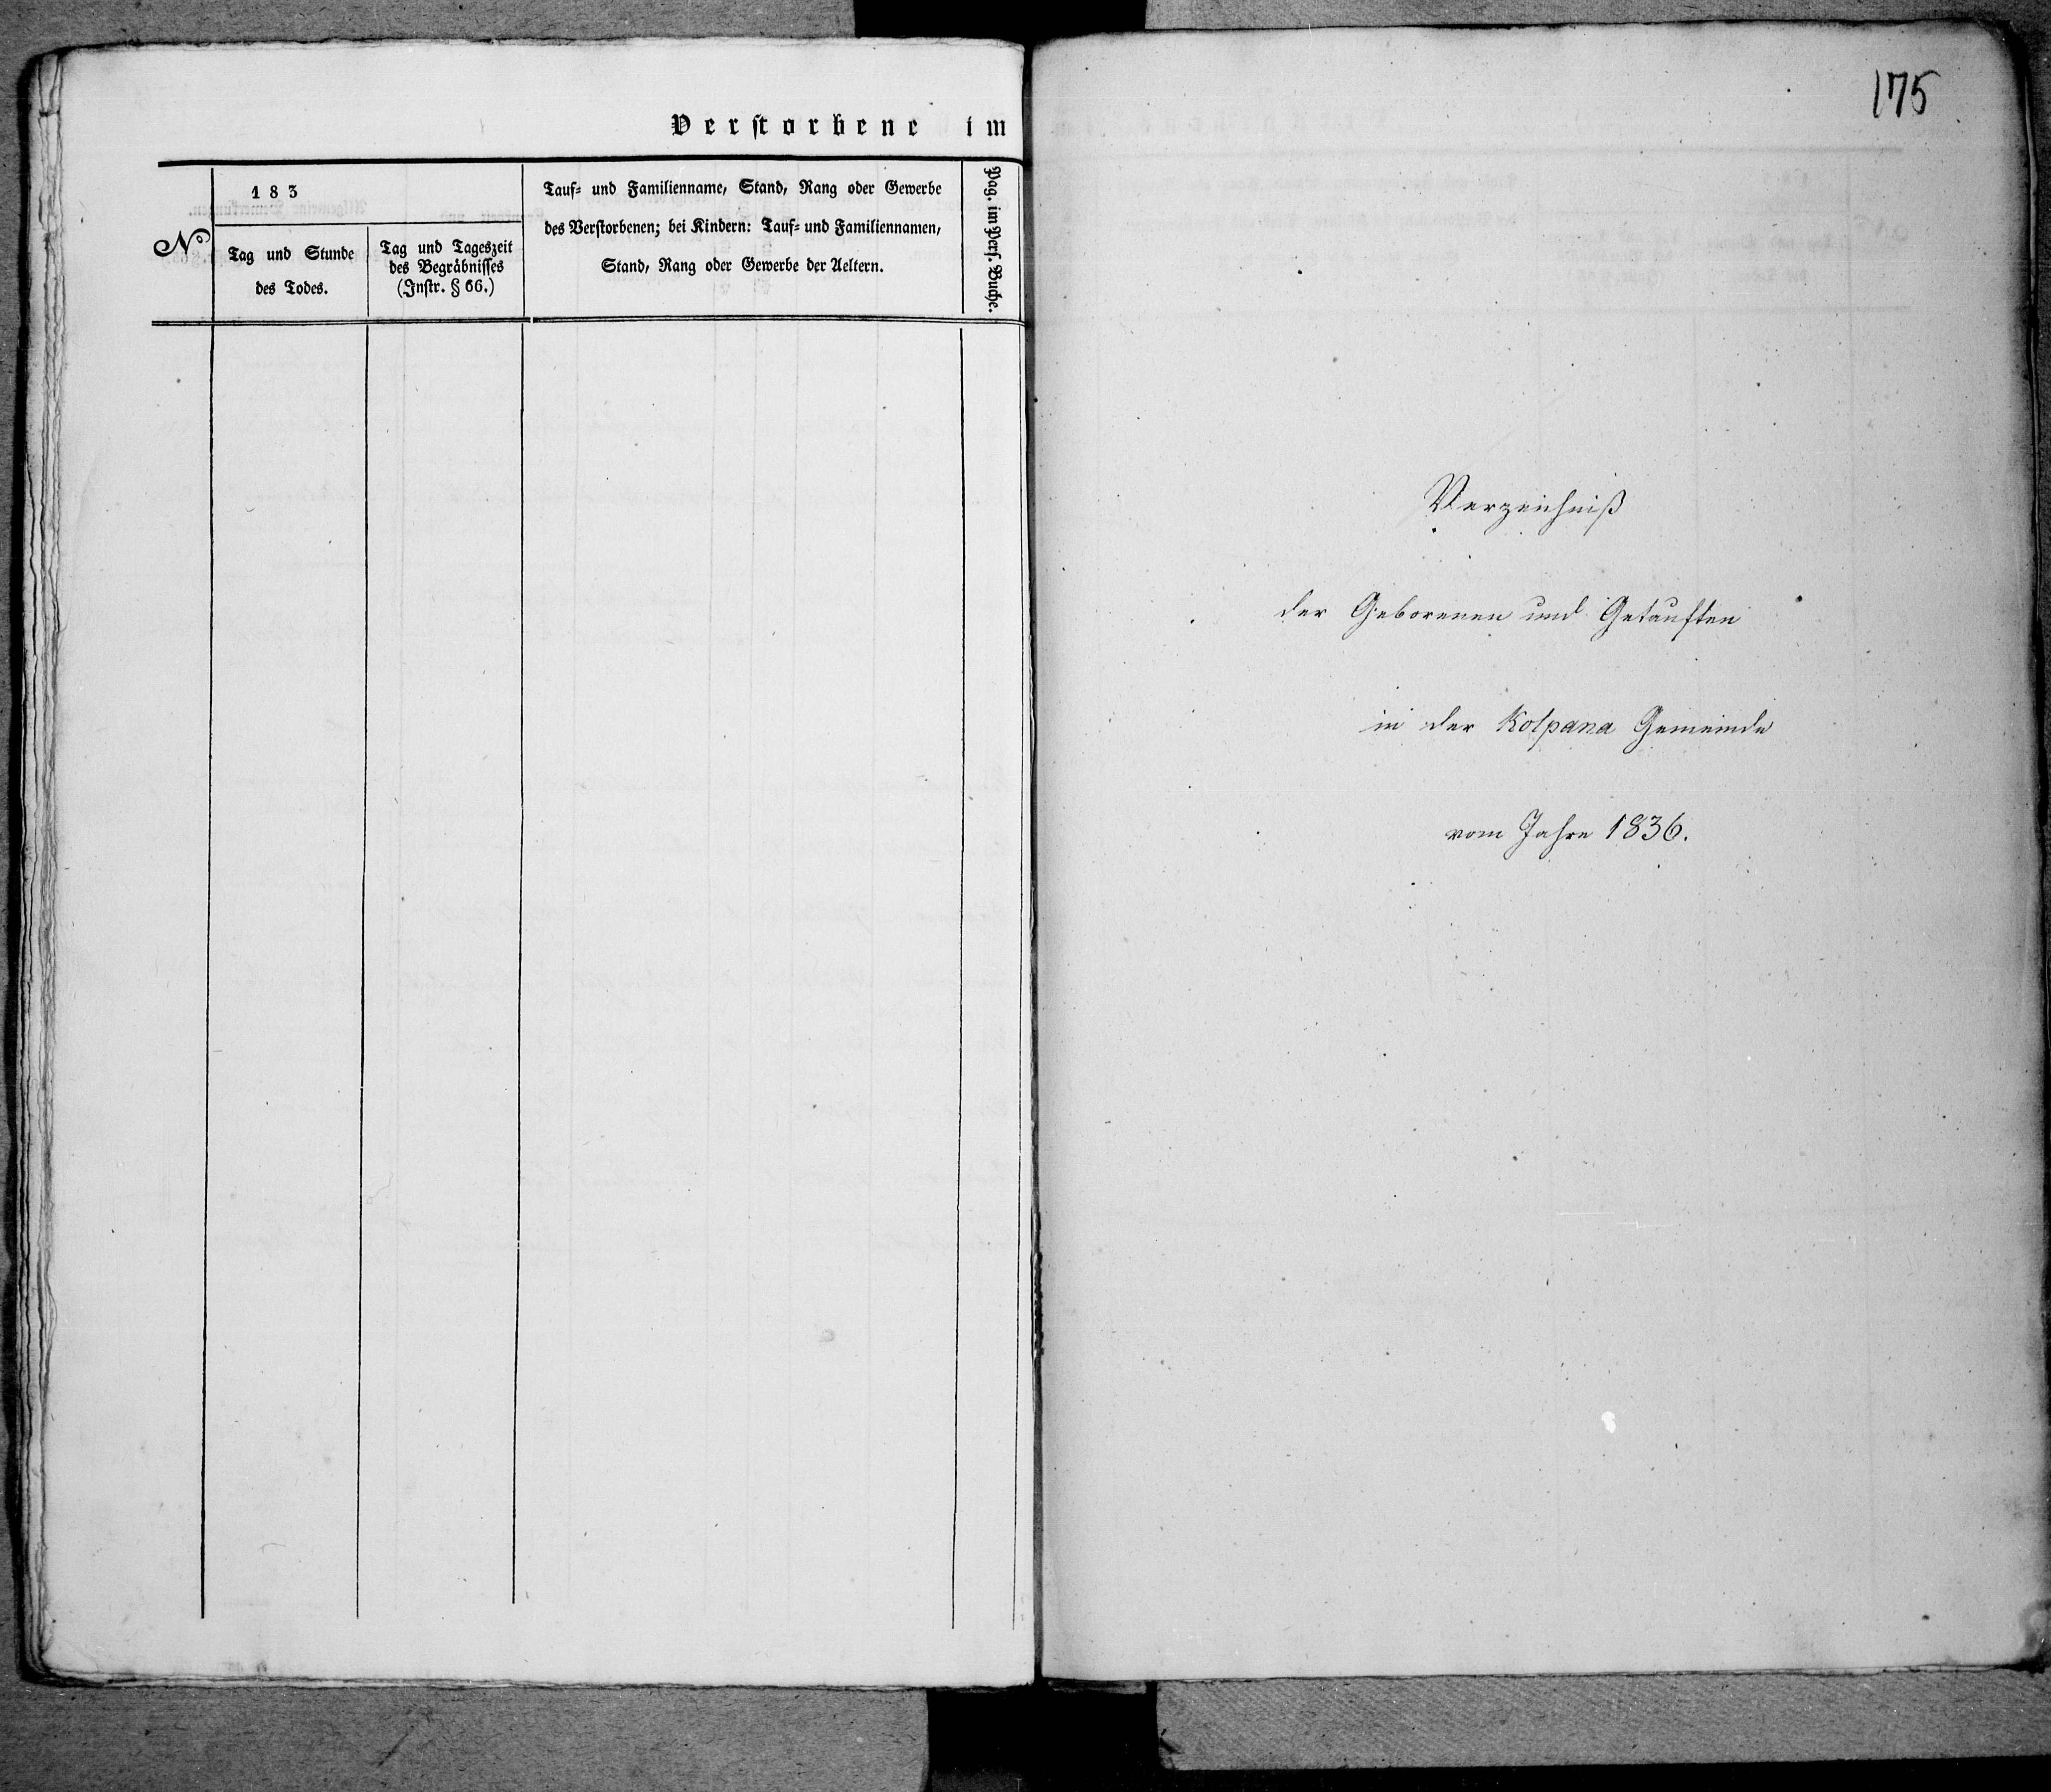 Verstorbene im
No
183
Tag und Stunde
des Todes.
Tag und Tageszeit
des Begräbnisses
(Instr. § 66.)
Tauf- und Familienname, Stand, Rang oder Gewerbe
des Verstorbenen; bei Kindern: Tauf- und Familiennamen,
Stand, Rang oder Gewerbe der Aeltern.
Pag. im Pers. Buche.
175
Verzeichniß
der Geborenen und Getauften
in der Kolpana Gemeinde
vom Jahre 1836.